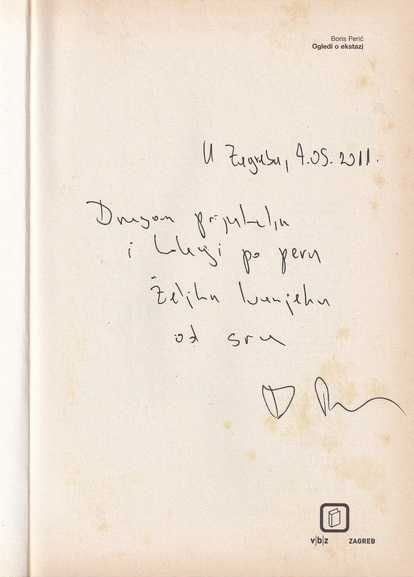 Boris Perić
Ogledi o ekstazi
U Zagrebu, 4.05.2011.
Dragom prijatelju
i kolegi po peru
Željku Ivanjeku
od srca
v|b|z ZAGREB